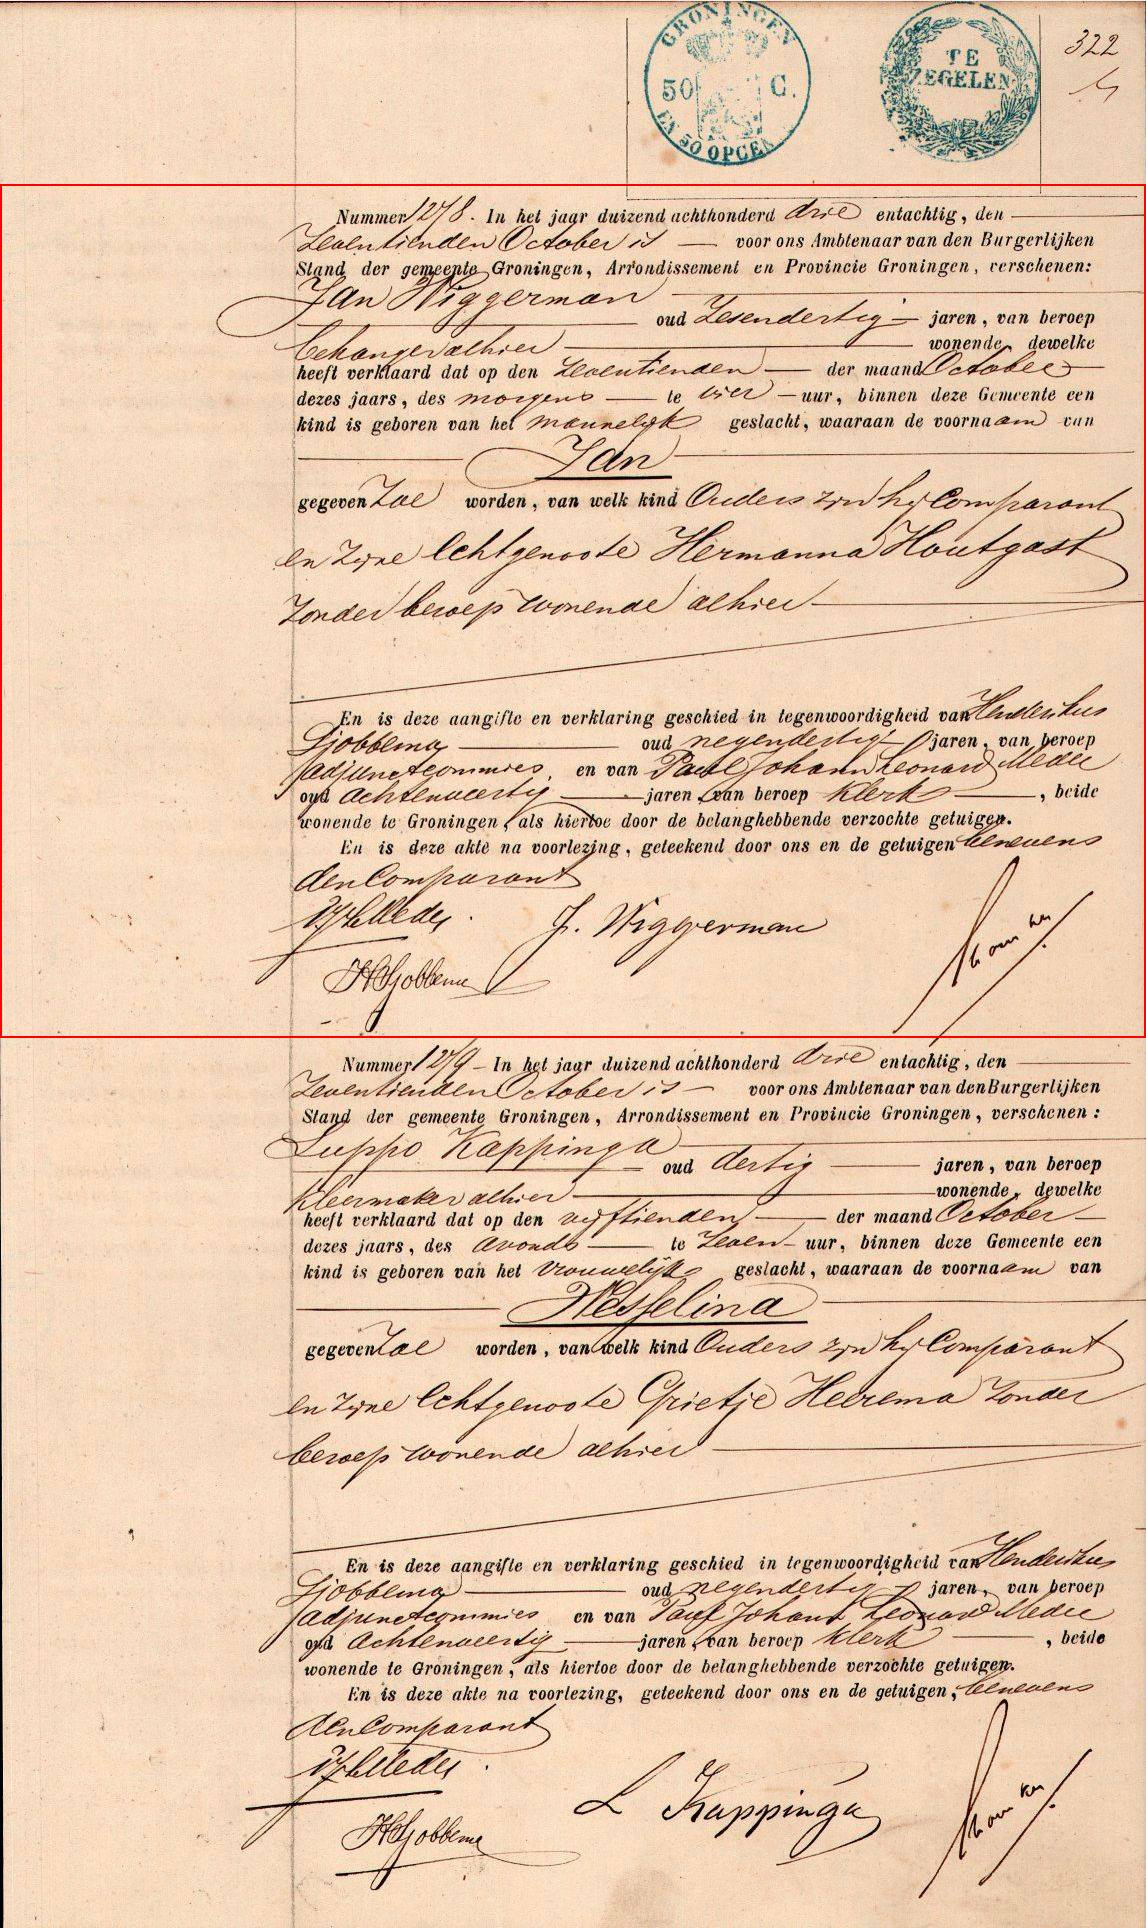 GRONINGEN
50 C.
EN 50 OPCEN
TE
ZEGELEN
322
Nummer 1278. In het jaar duizend achthonderd drie entachtig, den
Zeventienden October is voor ons Ambtenaar van den Burgerlijken
Stand der gemeente Groningen, Arrondissement en Provincie Groningen, verschenen:
Jan Wiggerman
oud Zesendertig jaren, van beroep
behanger alhier wonende, dewelke
heeft verklaard dat op den Zeventienden der maand October
dezes jaars, des morgens te vier uur, binnen deze Gemeente een
kind is geboren van het mannelijk geslacht, waaraan de voornaam van
Jan
gegeven Zal worden, van welk kind Ouders zijn hij Comparant
en Zijne Echtgenoote Hermanna Houtgast
Zonder beroep wonende alhier
En is deze aangifte en verklaring geschied in tegenwoordigheid van Henderikus
Sjobbema oud negendertig jaren, van beroep
adjunctcommies, en van Paul Johann Leonard Meder
oud Achtenveertig jaren, van beroep Klerk, beide
wonende te Groningen, als hiertoe door de belanghebbende verzochte getuigen.
En is deze akte na voorlezing, geteekend door ons en de getuigen benevens
den Comparant
J. Wiggerman
HSjobbema
Nummer 1279 In het jaar duizend achthonderd drie entachtig, den
Zeventienden October is voor ons Ambtenaar van den Burgerlijken
Stand der gemeente Groningen, Arrondissement en Provincie Groningen, verschenen:
Luppo Kappinga
oud dertig jaren, van beroep
Kleermaker alhier wonende, dewelke
heeft verklaard dat op den vijftienden der maand October
dezes jaars, des Avonds te Zeven uur, binnen deze Gemeente een
kind is geboren van het Vrouwelijk geslacht, waaraan de voornaam van
Hesselina
gegeven Zal worden, van welk kind Ouders zijn hij Comparant
en Zijne Echtgenoote Grietje Heerema Zonder
beroep wonende alhier
En is deze aangifte en verklaring geschied in tegenwoordigheid van Henderikus
Sjobbema oud negendertig jaren, van beroep
adjunctcommies en van Paul Johann Leonard Meder
oud Achtenveertig jaren, van beroep Klerk, beide
wonende te Groningen, als hiertoe door de belanghebbende verzochte getuigen.
En is deze akte na voorlezing, geteekend door ons en de getuigen, benevens
den Comparant
L Kappinga
HSjobbema